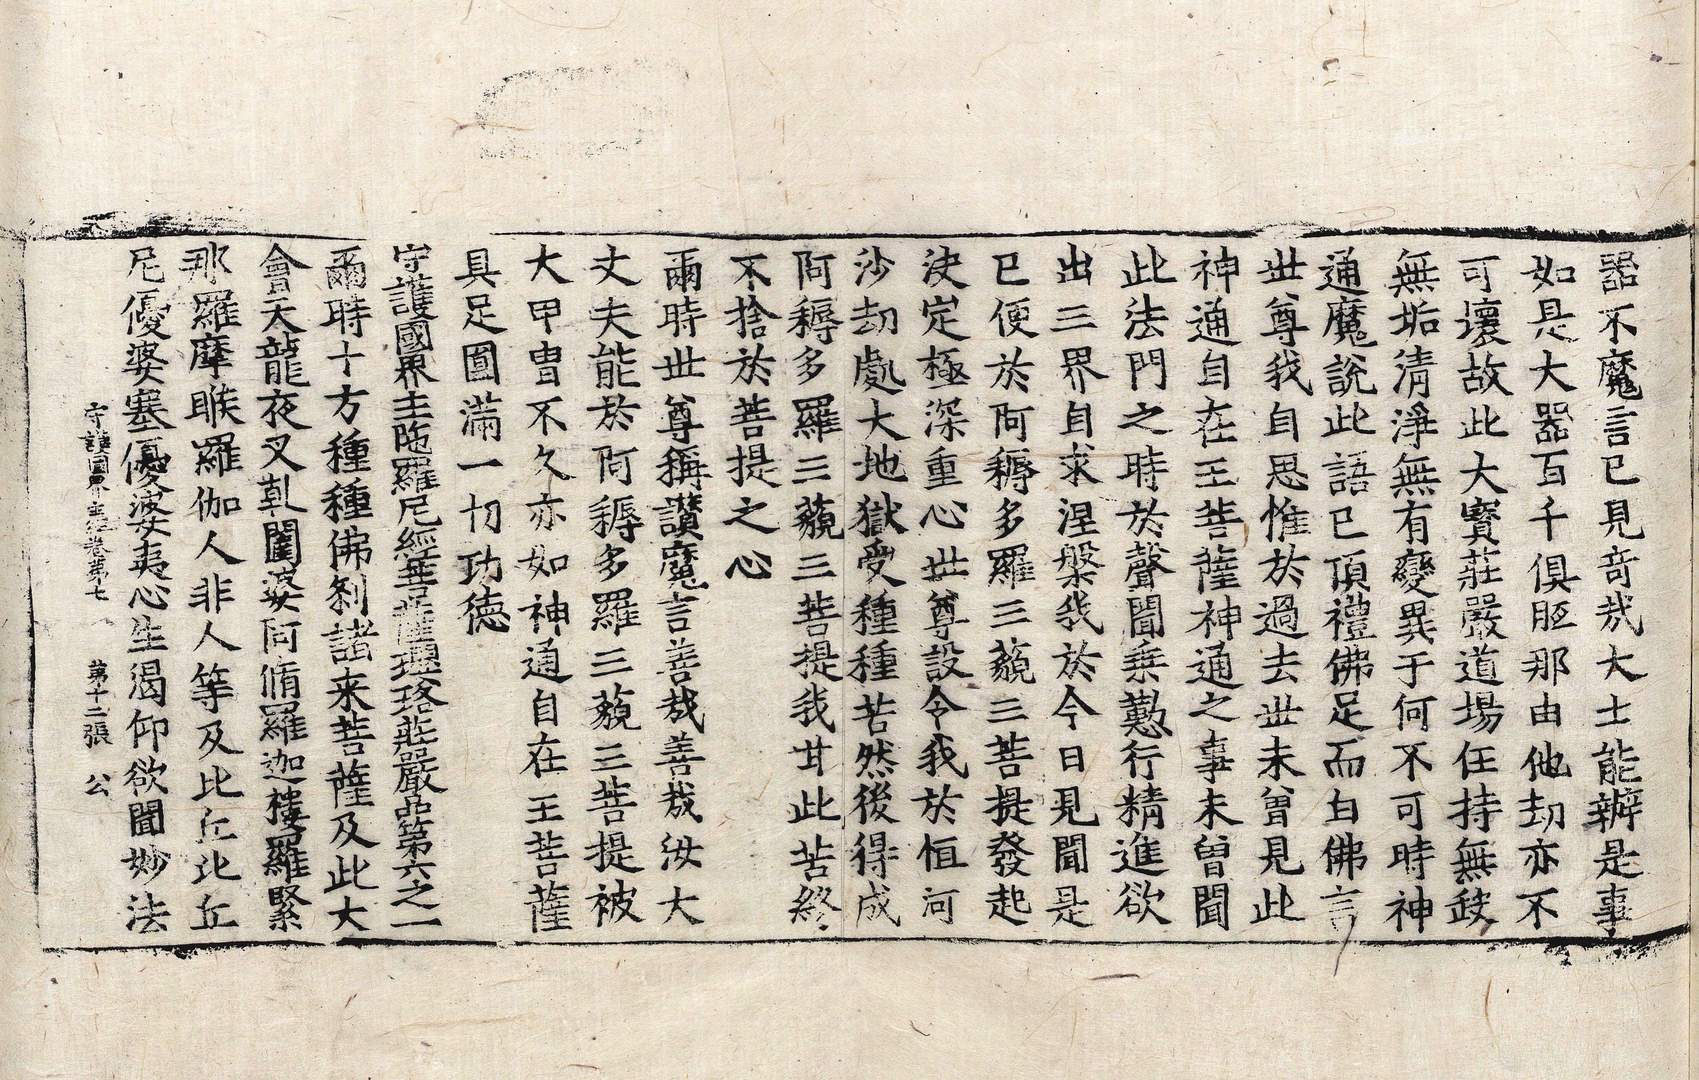 器不魔言已見竒㦲大士能辦是事
如是大器百千俱胝那由他劫亦不
可壞故此大寳莊嚴道場任持無𡙇
無垢清淨無有變異于何不可時神
通魔說此語已頂禮佛足而白佛言
丗尊我自思惟於過去丗未曾見此
神通自在王菩薩神通之事未曾聞
此法門之時於聲聞乗懃行精進欲
出三界自求涅槃我於今日見聞是
已便於阿耨多羅三藐三菩提發起
決定極深重心丗尊設令我於恒河
沙劫處大地獄受種種苦然後得成
阿耨多羅三藐三菩提我甘此苦終
不捨於菩提之心
爾時丗尊稱讃魔言善㦲善㦲汝大
丈夫能於阿耨多羅三藐三菩提被
大甲冑不久亦如神通自在王菩薩
具足圓滿一切功德
守護國界主陁羅尼經菩薩瓔珞莊嚴品第六之一
爾時十方種種佛剎諸来菩薩及此大
會天龍夜叉乹闥婆阿脩羅迦樓羅緊
那羅摩睺羅伽人非人等及比丘比丘
尼優婆塞優婆夷心生渴仰欲聞妙法
守護國界主經卷第七 第十二張 公